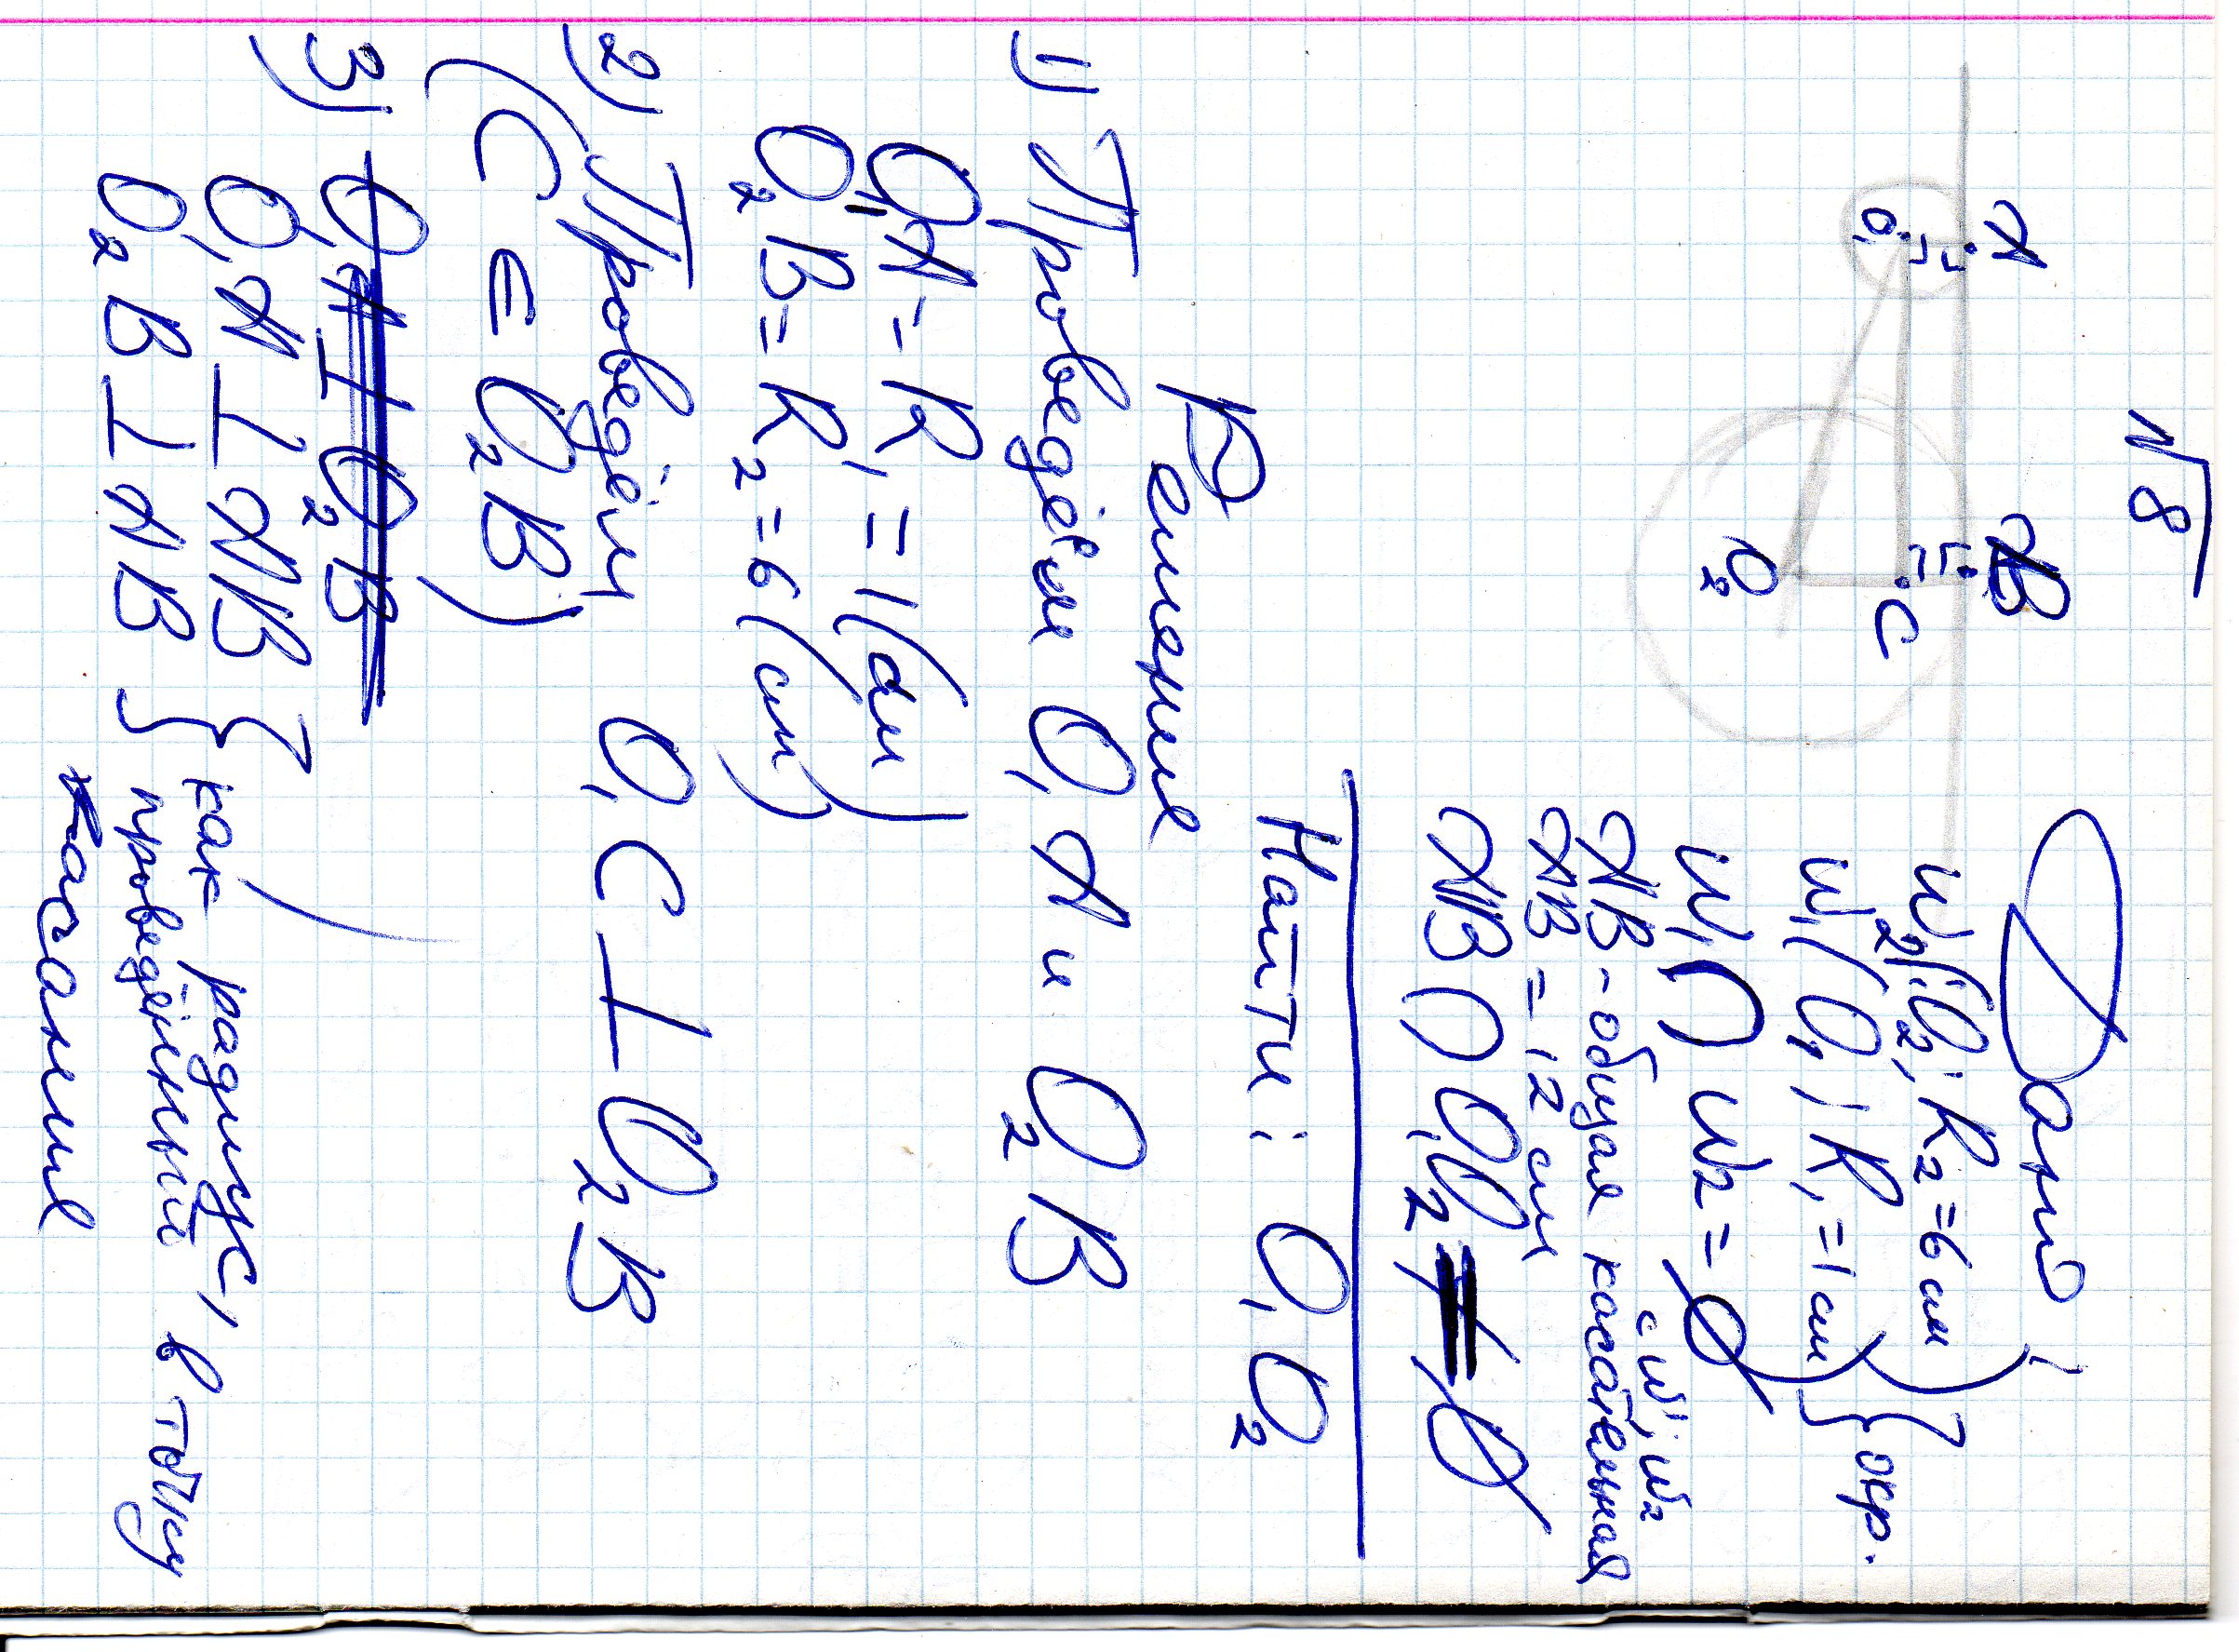 №8
A
B
O₁
C
O₂
Дано:
ω₂(O₂; R₂=6см) } окр.
ω₁(O₁; R₁=1см)
ω₁ ∩ ω₂ = ∅
с ω₁, ω₂
AB - общая касательная
AB = 12 см
AB ∩ O₁O₂ = ∅
Найти: O₁O₂
Решение
1) Проведём O₁A и O₂B
O₁A = R₁ = 1(см)
O₂B = R₂ = 6(см)
2) Проведём O₁C ⊥ O₂B
(C ∈ O₂B)
3)
O₁A ⊥ AB } как радиус,
O₂B ⊥ AB проведённый в точку
касания